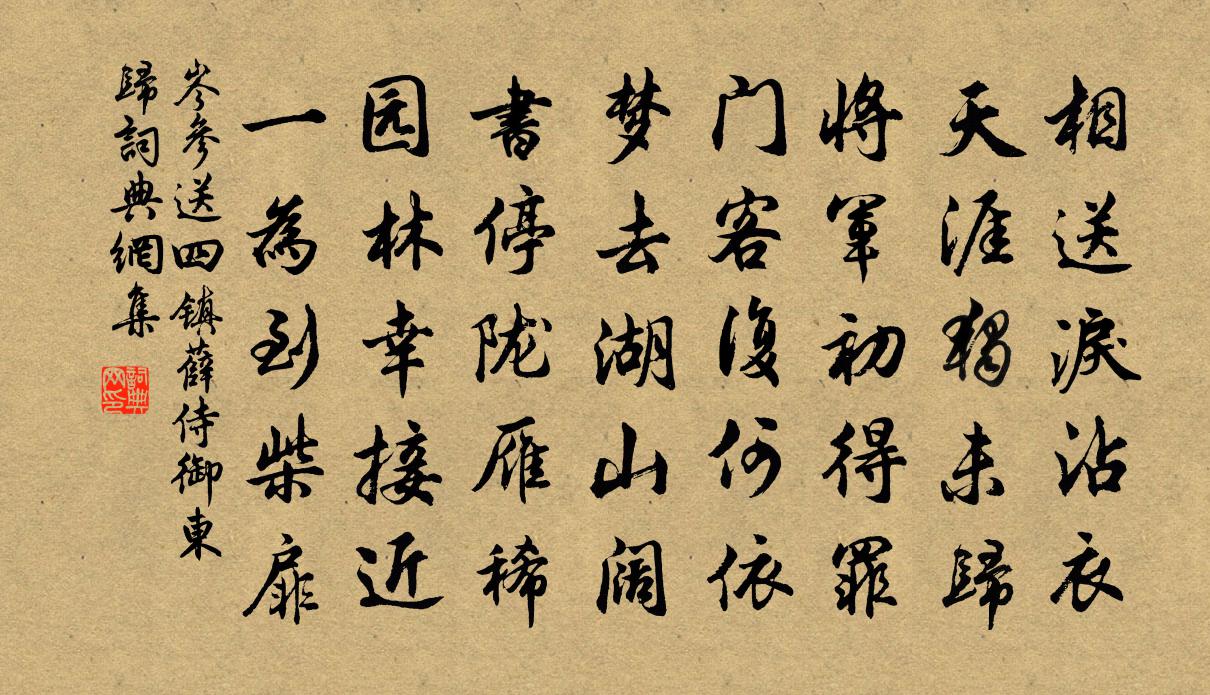 相送淚沾衣
天涯獨未歸
將軍初得罪
门客復何依
梦去湖山阔
書停陇雁稀
园林幸接近
一為到柴扉
岑參送四鎮薛侍御東
歸詞典網集
詞典
网印